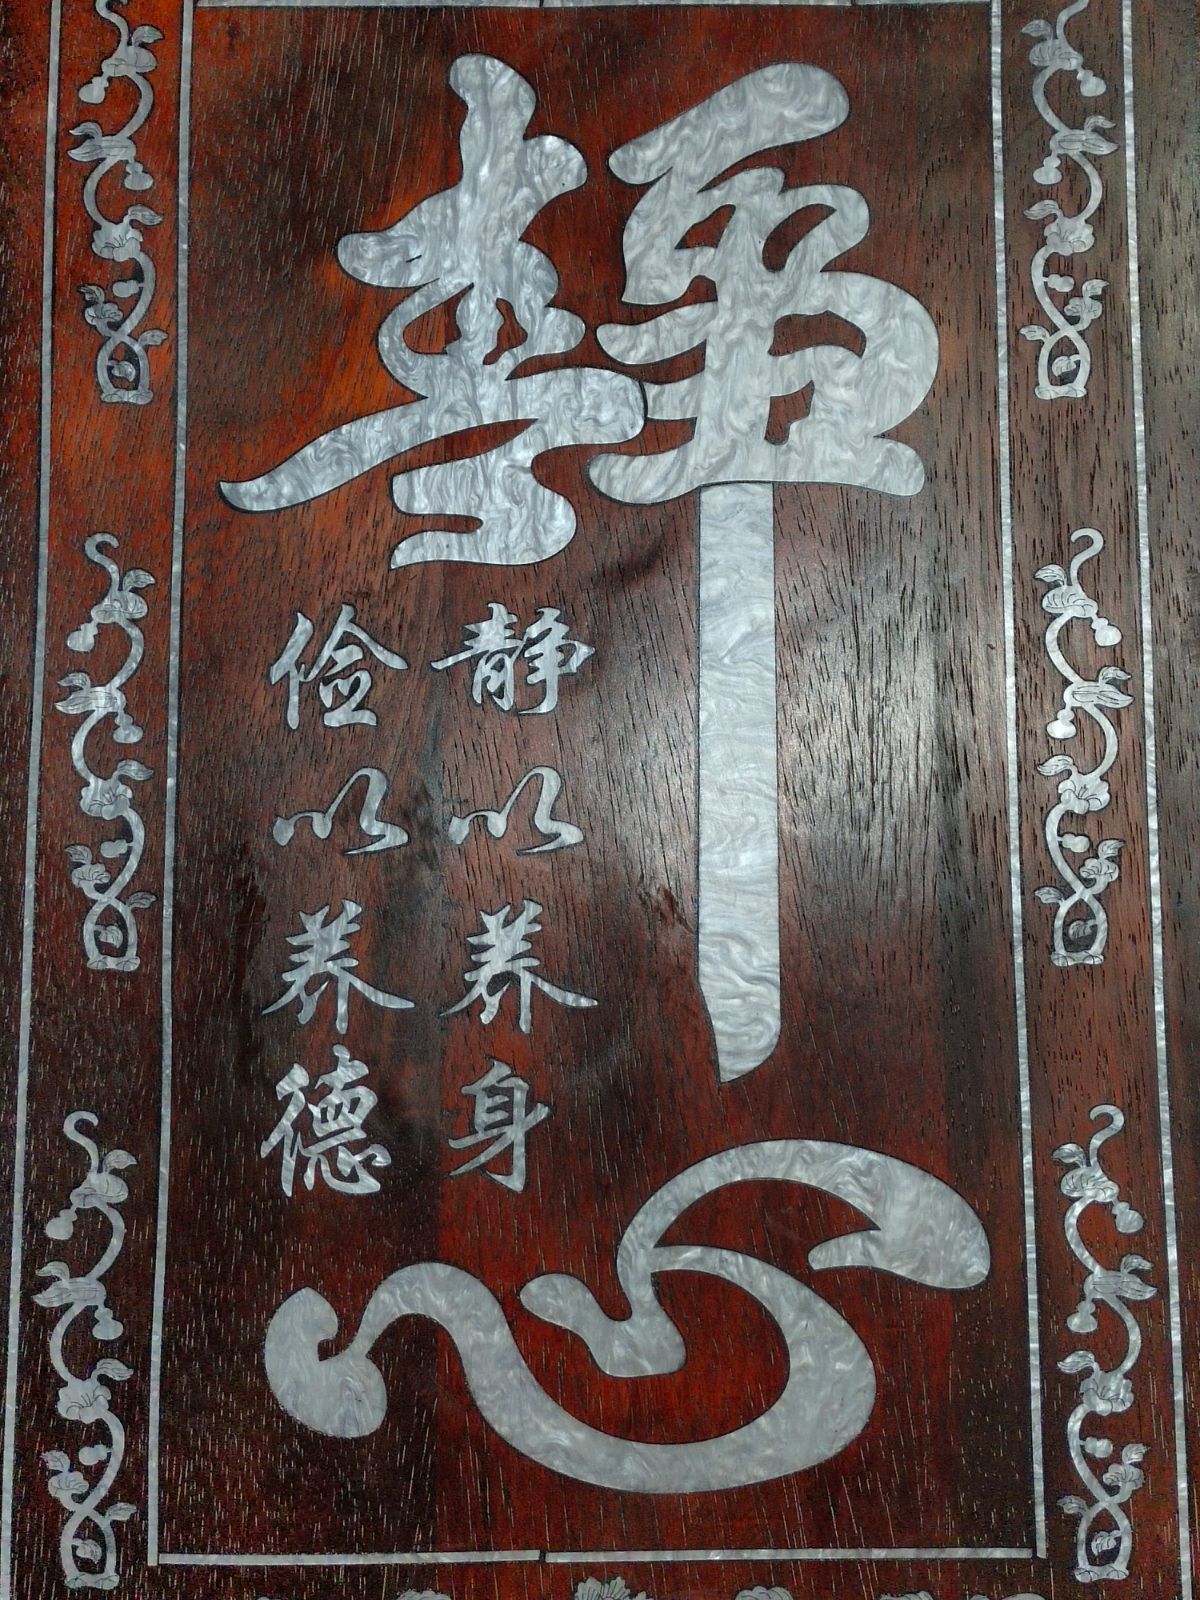 静心
静以养身
俭以养德